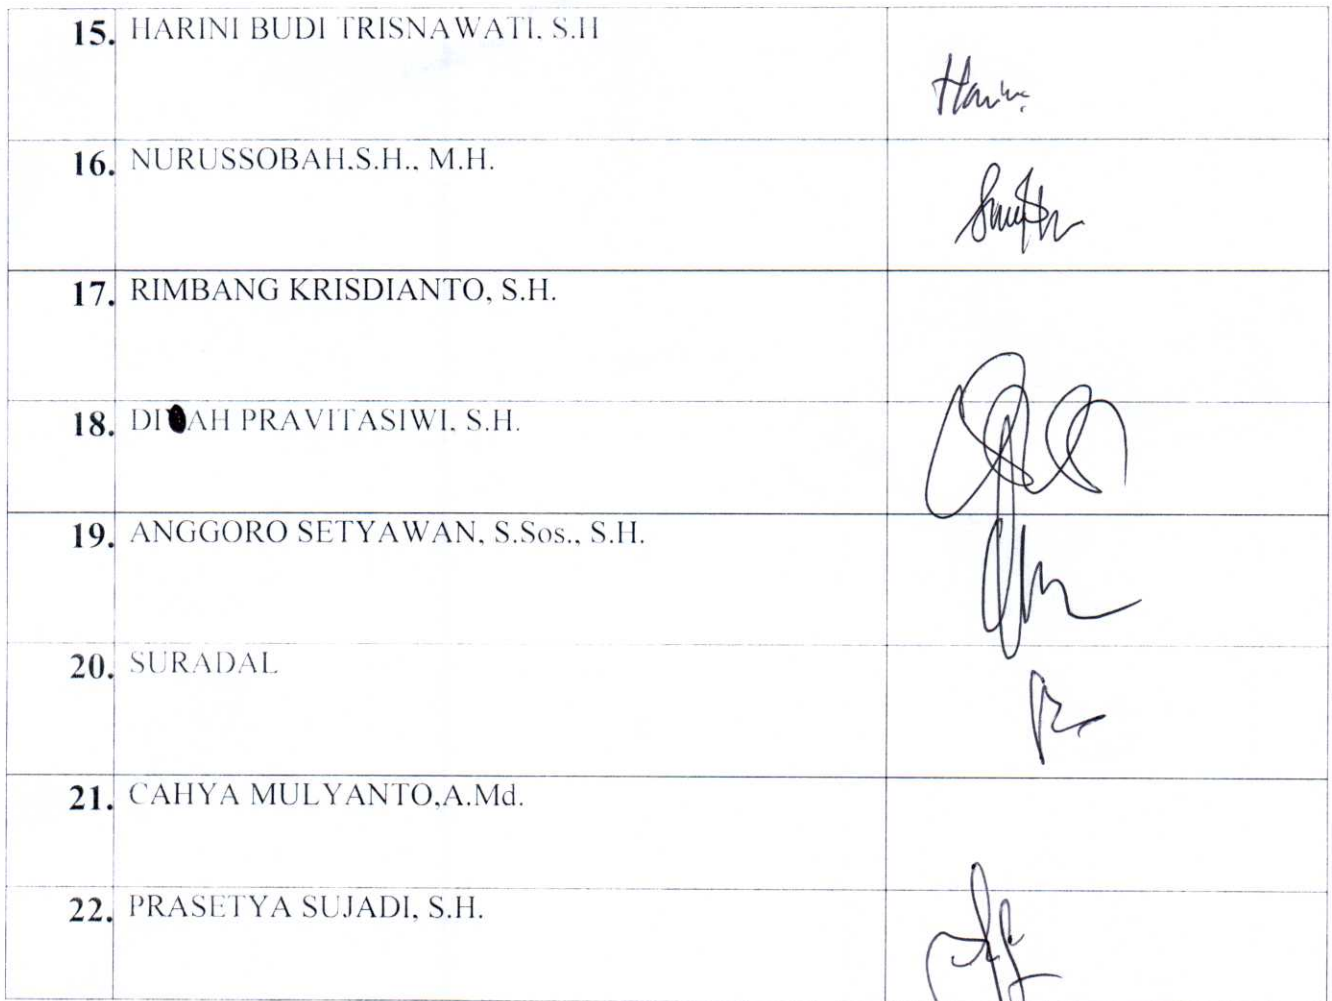 15. HARINI BUDI TRISNAWATI. S.H
Harini
16. NURUSSOBAH.S.H., M.H.
17. RIMBANG KRISDIANTO, S.H.
18. PRAVITASIWI. S.H.
19. ANGGORO SETYAWAN, S.Sos., S.H.
20. SURADAL
21. CAHYA MULYANTO,A.Md.
22. PRASETYA SUJADI, S.H.